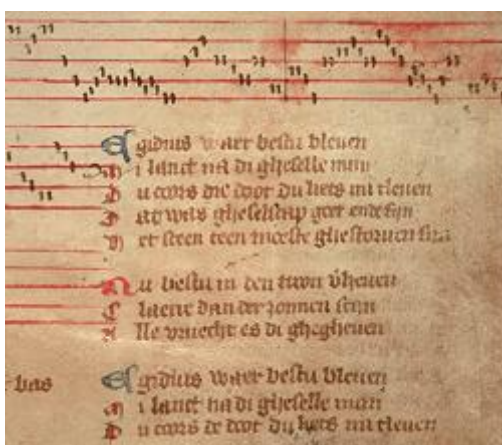 Egidius waer bestu bleuen
Mi lanct na di gheselle mijn
Du coors die doot du liets mi tleuen
Dat was gheselscap goet ende fijn
Het sceen teen moeste ghestoruen sijn
Nu bestu in den troon vheuen
Claerre dan der zonnen scijn
Alle vruecht es di ghegheuen
bas
Egidius waer bestu bleuen
Mi lanct na di gheselle mijn
Du coors de doot du liets mi tleuen